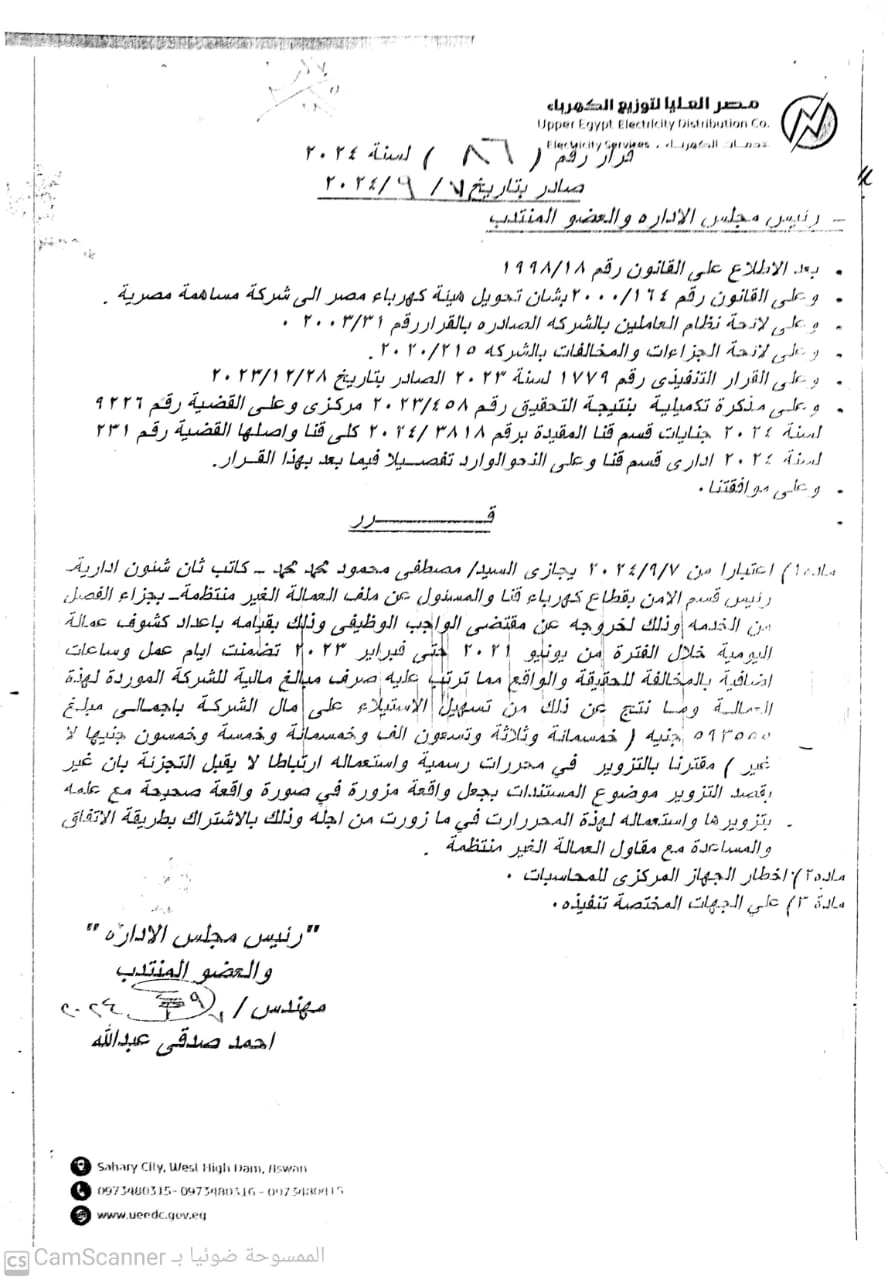 مصر العليا لتوزيع الكهرباء
Upper Egypt Electricity Distribution Co.
خدمات الكهرباء . Electricity Services
قرار رقم ( ٨٦ ) لسنة ٢٠٢٤
صادر بتاريخ ٧ / ٩ /٢٠٢٤
- رئيس مجلس الاداره والعضو المنتدب
• بعد الاطلاع على القانون رقم ١٩٩٨/١٨
• وعلى القانون رقم ٢٠٠٠/١٦٤ بشان تحويل هيئة كهرباء مصر الى شركة مساهمة مصرية .
• وعلى لائحة نظام العاملين بالشركه الصادره بالقراررقم ٢٠٠٣/٣١ .
• وعلى لائحة الجزاءات والمخالفات بالشركه ٢٠٢٠/٢١٥ .
• وعلى القرار التنفيذى رقم ١٧٧٩ لسنة ٢٠٢٣ الصادر بتاريخ ٢٠٢٣/١٢/٢٨
• وعلى مذكرة تكميلية بنتيجة التحقيق رقم ٢٠٢٣/٤٥٨ مركزى وعلى القضية رقم ٩٢٢٦
لسنة ٢٠٢٤ جنايات قسم قنا المقيدة برقم ٣٨١٨ /٢٠٢٤ كلى قنا واصلها القضية رقم ٢٣١
لسنة ٢٠٢٤ ادارى قسم قنا وعلى النحوالوارد تفصيلا فيما بعد بهذا القرار.
• وعلى موافقتنا.
قـــــــــرر
ماده١) اعتبارا من ٢٠٢٤/٩/٧ يجازى السيد/ مصطفى محمود محمد محمد – كاتب ثان شئون ادارية-
رئيس قسم الامن بقطاع كهرباء قنا والمسئول عن ملف العمالة الغير منتظمة- بجزاء الفصل
من الخدمه وذلك لخروجه عن مقتضى الواجب الوظيفى وذلك بقيامه باعداد كشوف عمالة
اليومية خلال الفترة من يونيو ٢٠٢١ حتى فبراير ٢٠٢٣ تضمنت ايام عمل وساعات
اضافية بالمخالفة للحقيقة والواقع مما ترتب عليه صرف مبالغ مالية للشركة الموردة لهذة
العمالة وما نتج عن ذلك من تسهيل الاستيلاء على مال الشركة باجمالى مبلغ
٥٩٣٥٥٥ جنيه ( خمسمائة وثلاثة وتسعون الف وخمسمائة وخمسة وخمسون جنيها لا
غير ) مقترنا بالتزوير في محررات رسمية واستعماله ارتباطا لا يقبل التجزئة بان غير
بقصد التزوير موضوع المستندات بجعل واقعة مزورة في صورة واقعة صحيحة مع علمه
بتزويرها واستعماله لهذة المحررارت في ما زورت من اجله وذلك بالاشتراك بطريقة الاتفاق
والمساعدة مع مقاول العمالة الغير منتظمة .
ماده٢) اخطار الجهاز المركزى للمحاسبات .
مادة ٣) علي الجهات المختصة تنفيذه.
"رئيس مجلس الاداره "
والعضو المنتدب
مهندس /
احمد صدقى عبدالله
Sahary City, West High Dam, Aswan
0973480315- 0973480316 - 0973480415
www.ueedc.gov.eg
CS CamScanner الممسوحة ضوئيا بـ